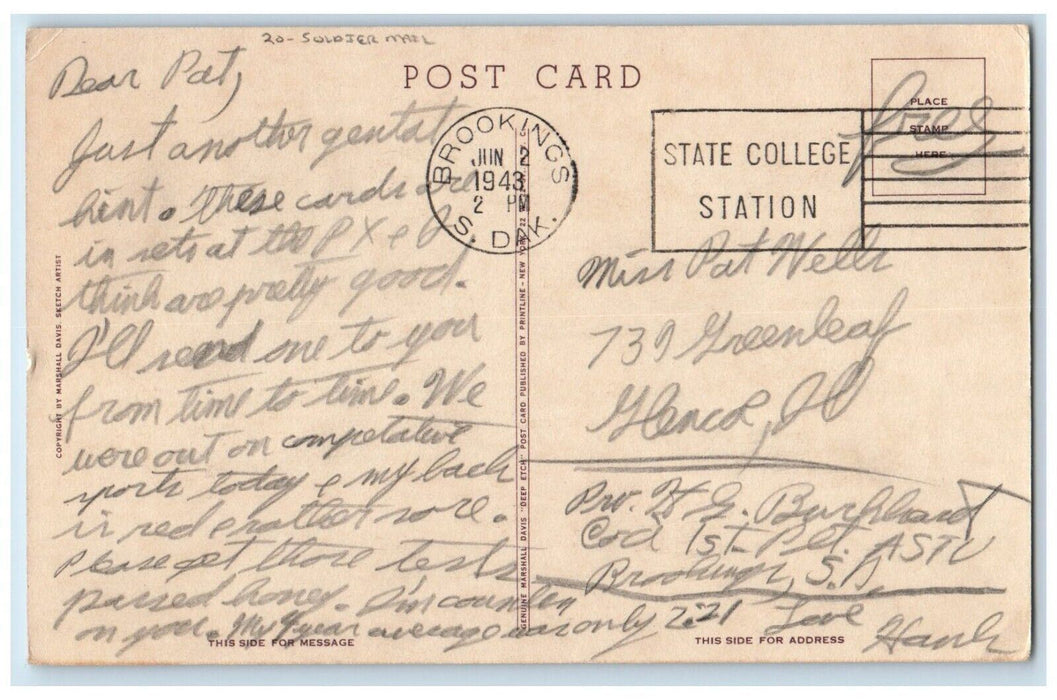 20- SOLDIER MAIL
POST CARD
Dear Pat,
Just another gental
hint. These cards are
in sets at the PX & I
think are pretty good.
I'll send one to you
from time to time. We
were out on competative
sports today & my back
is red & rather sore.
Please get those tests
passed honey. I'm counten
on you. My 4 year average was only 2.21
Love
Hank
THIS SIDE FOR MESSAGE
COPYRIGHT BY MARSHALL DAVIS, SKETCH ARTIST
GENUINE MARSHALL DAVIS "DEEP ETCH" POST CARD PUBLISHED BY PRINTLINE - NEW YORK 22
BROOKINGS
JUN 2
1943
2 PM
S. DAK.
STATE COLLEGE
STATION
PLACE
STAMP
HERE
Free
Miss Pat Wells
739 Greenleaf
Glencoe, Ill
Pvt. H. G. Burkhard
Co. 1st. Plt. ASTU
Brookings, S.D.
THIS SIDE FOR ADDRESS